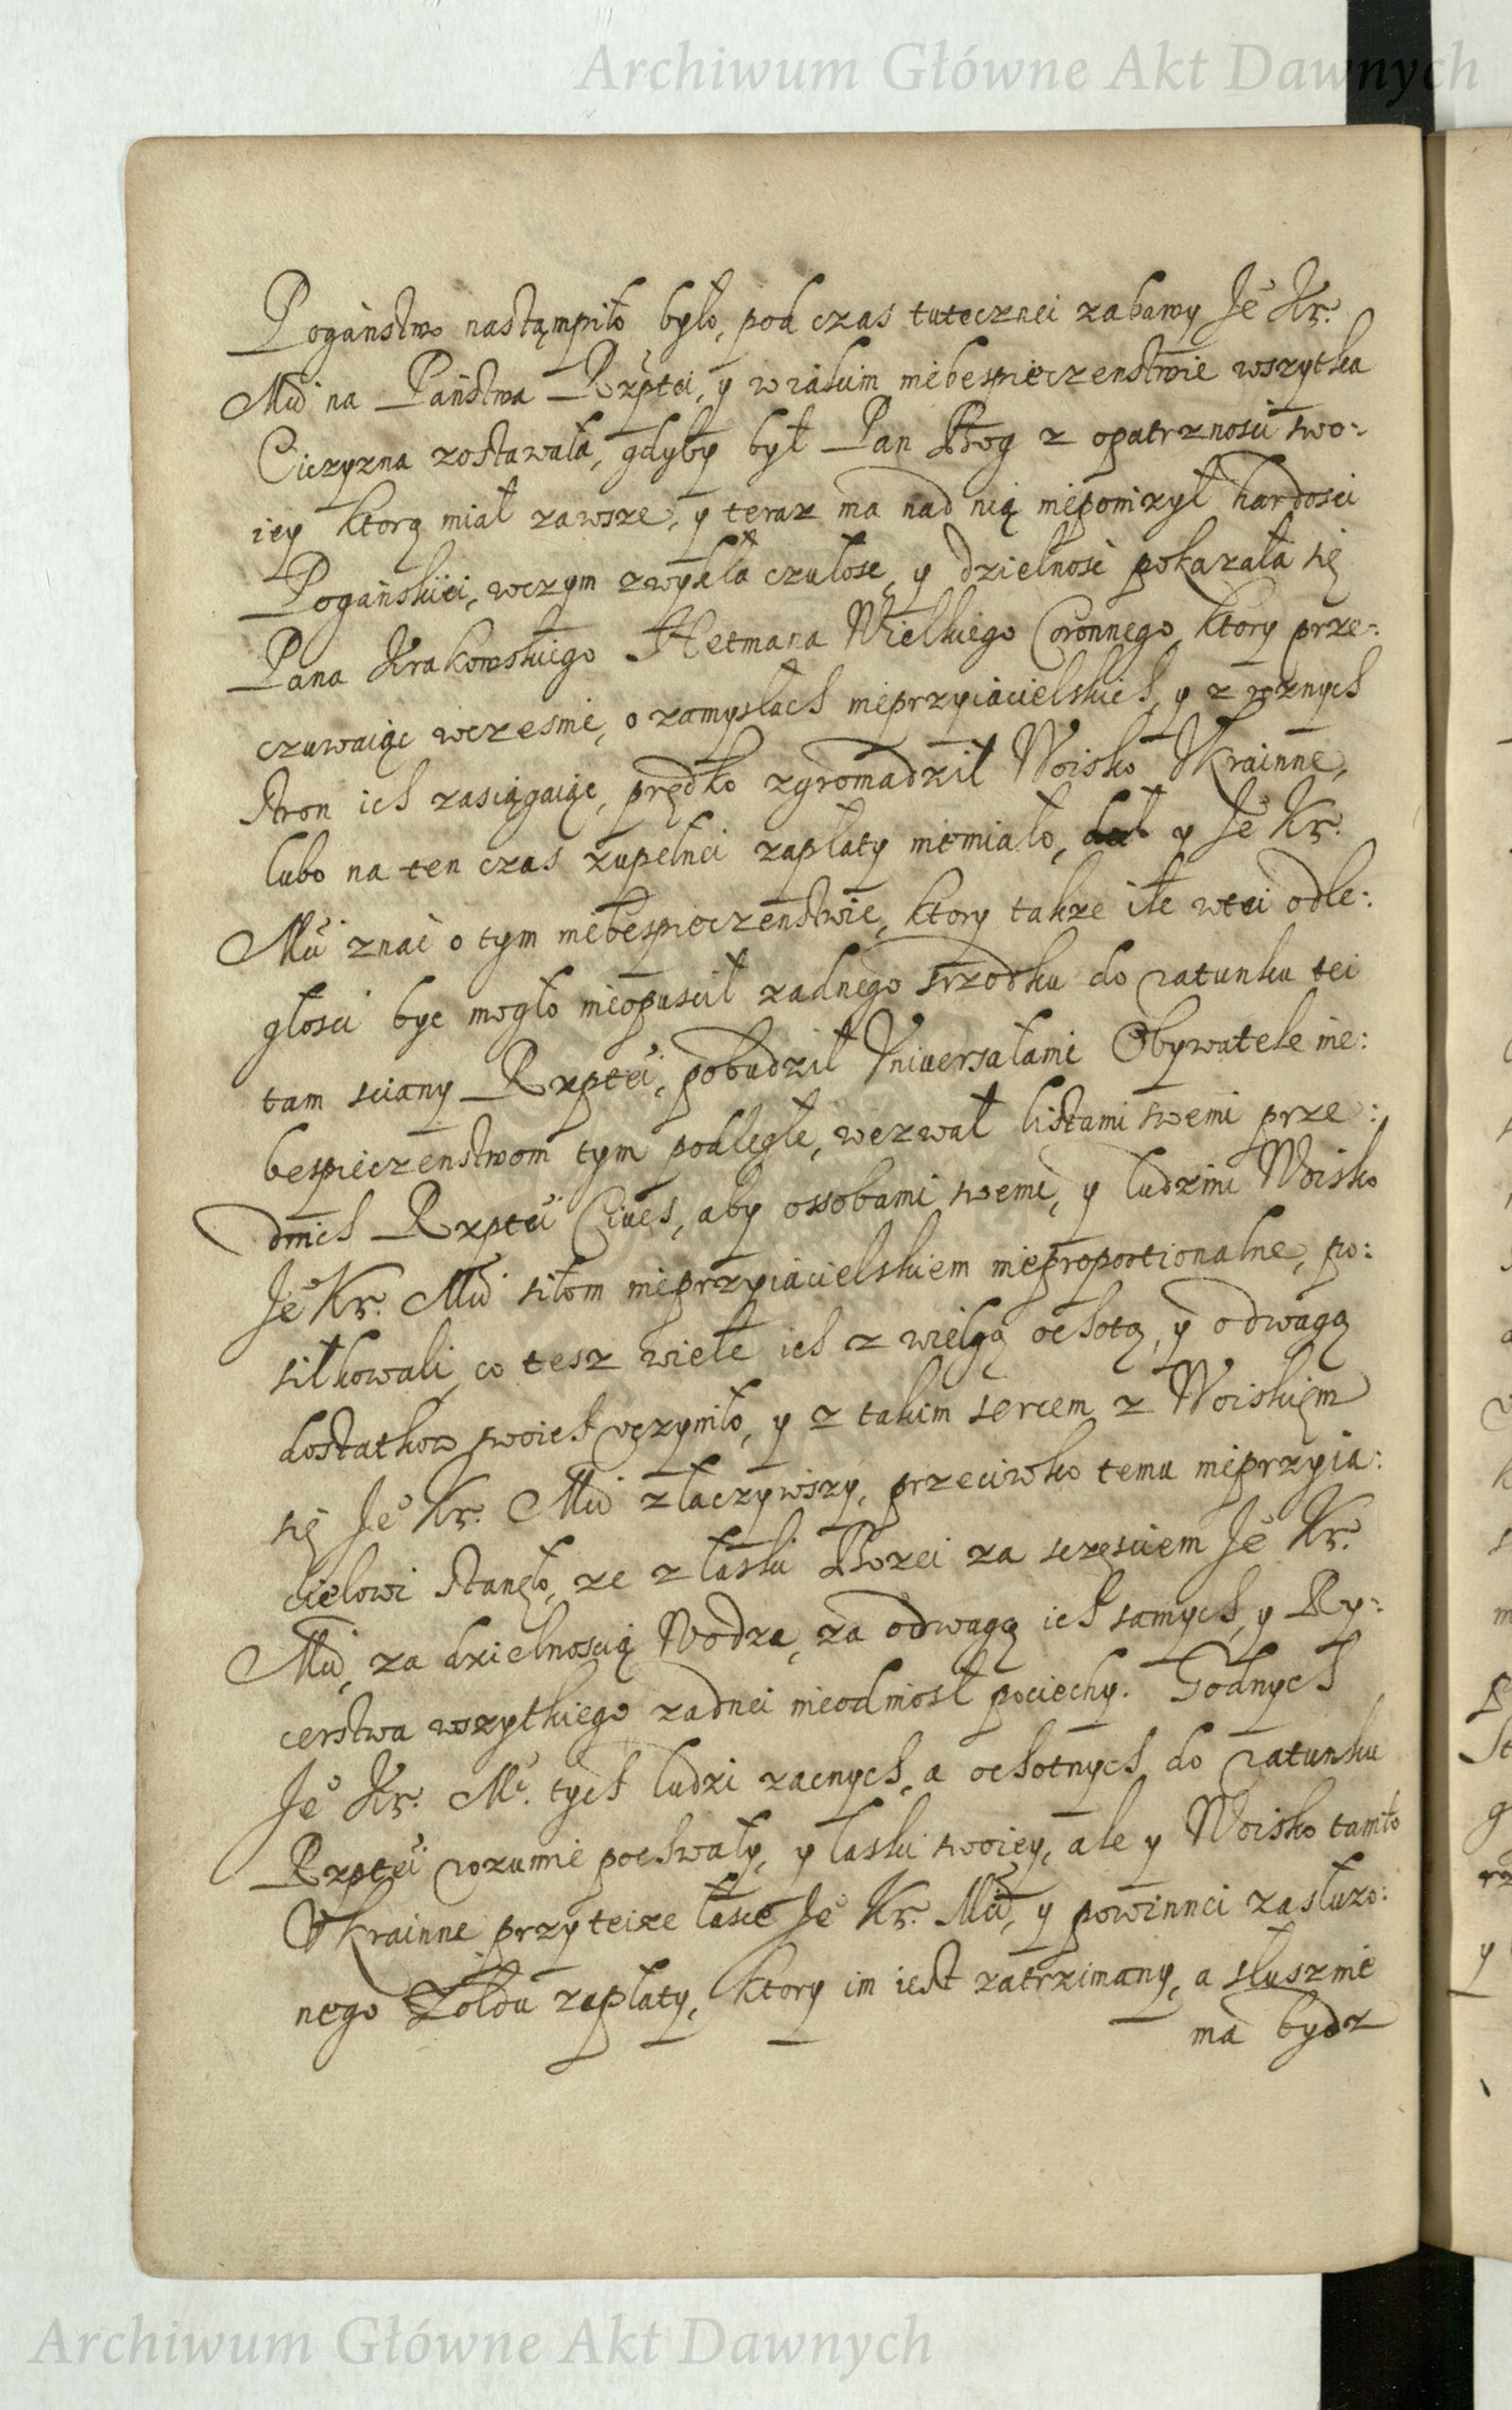 Archiwum Główne Akt Dawnych
Pogaństwo nastąmpiło było, pod czas tutecznei zabawy Je Kr.
Mci na Państwa Rzptei, y w iakim niebespieczenstwie wszytka
Oiczyzna zostawała, gdyby był Pan Bog z opatrznosci swo:
iey ktorą miał zawsze, y teraz ma nad nią nieponizył hardosci
Pogańskiei, wczym zwykła czułosc, y dzielnosc pokazała się
Pana Krakowskiego Hetmana Wielkiego Coronnego, ktory prze:
czuwaiąc wczesnie, o zamysłach nieprzyiacielskich, y z roznych
stron ich zasiągaiąc, prędko zgromadził Woisko Vkrainne,
lubo na ten czas zupełnei zapłaty niemiało, dał y Je Kr.
Mci znac o tym niebespieczenstwie, ktory takze ile wtei odle:
głosci byc mogło nieopuscił zadnego srzodku do ratunku tei
tam sciany Rzptei, pobudził Vniuersałami Obywatele nie:
bespieczenstwom tym podległe, wezwał listami swemi prze:
dnich Rzptei Ciues, aby ossobami swemi, y ludzmi Woisko
Je Kr. Mci siłom nieprzyiacielskiem nieproportionalne, po:
siłkowali, co tesz wiele ich z wielgą ochotą, y odwagą
dostatkow swoich vczyniło, y z takim sercem z Woiskiem
się Je Kr. Mci złaczywszy, przeciwko temu nieprzyia:
cielowi stanęło, ze z łaski Bozei za sczęsciem Je Kr.
Mci, za dzielnoscią Wodza, za odwagą ich samych, y Ry:
cerstwa wszytkiego zadnei nieodniosł pociechy. Godnych
Je Kr. Mc. tych ludzi zacnych, a ochotnych do ratunku
Rzptei rozumie pochwały, y łaski swoiey, ale y Woisko tamto
Vkrainne przy teize łasce Je Kr. Mci, y powinnei zasłuzo:
nego Zołdu zapłaty, ktory im iest zatrzimany, a słusznie
ma bydz
Archiwum Główne Akt Dawnych